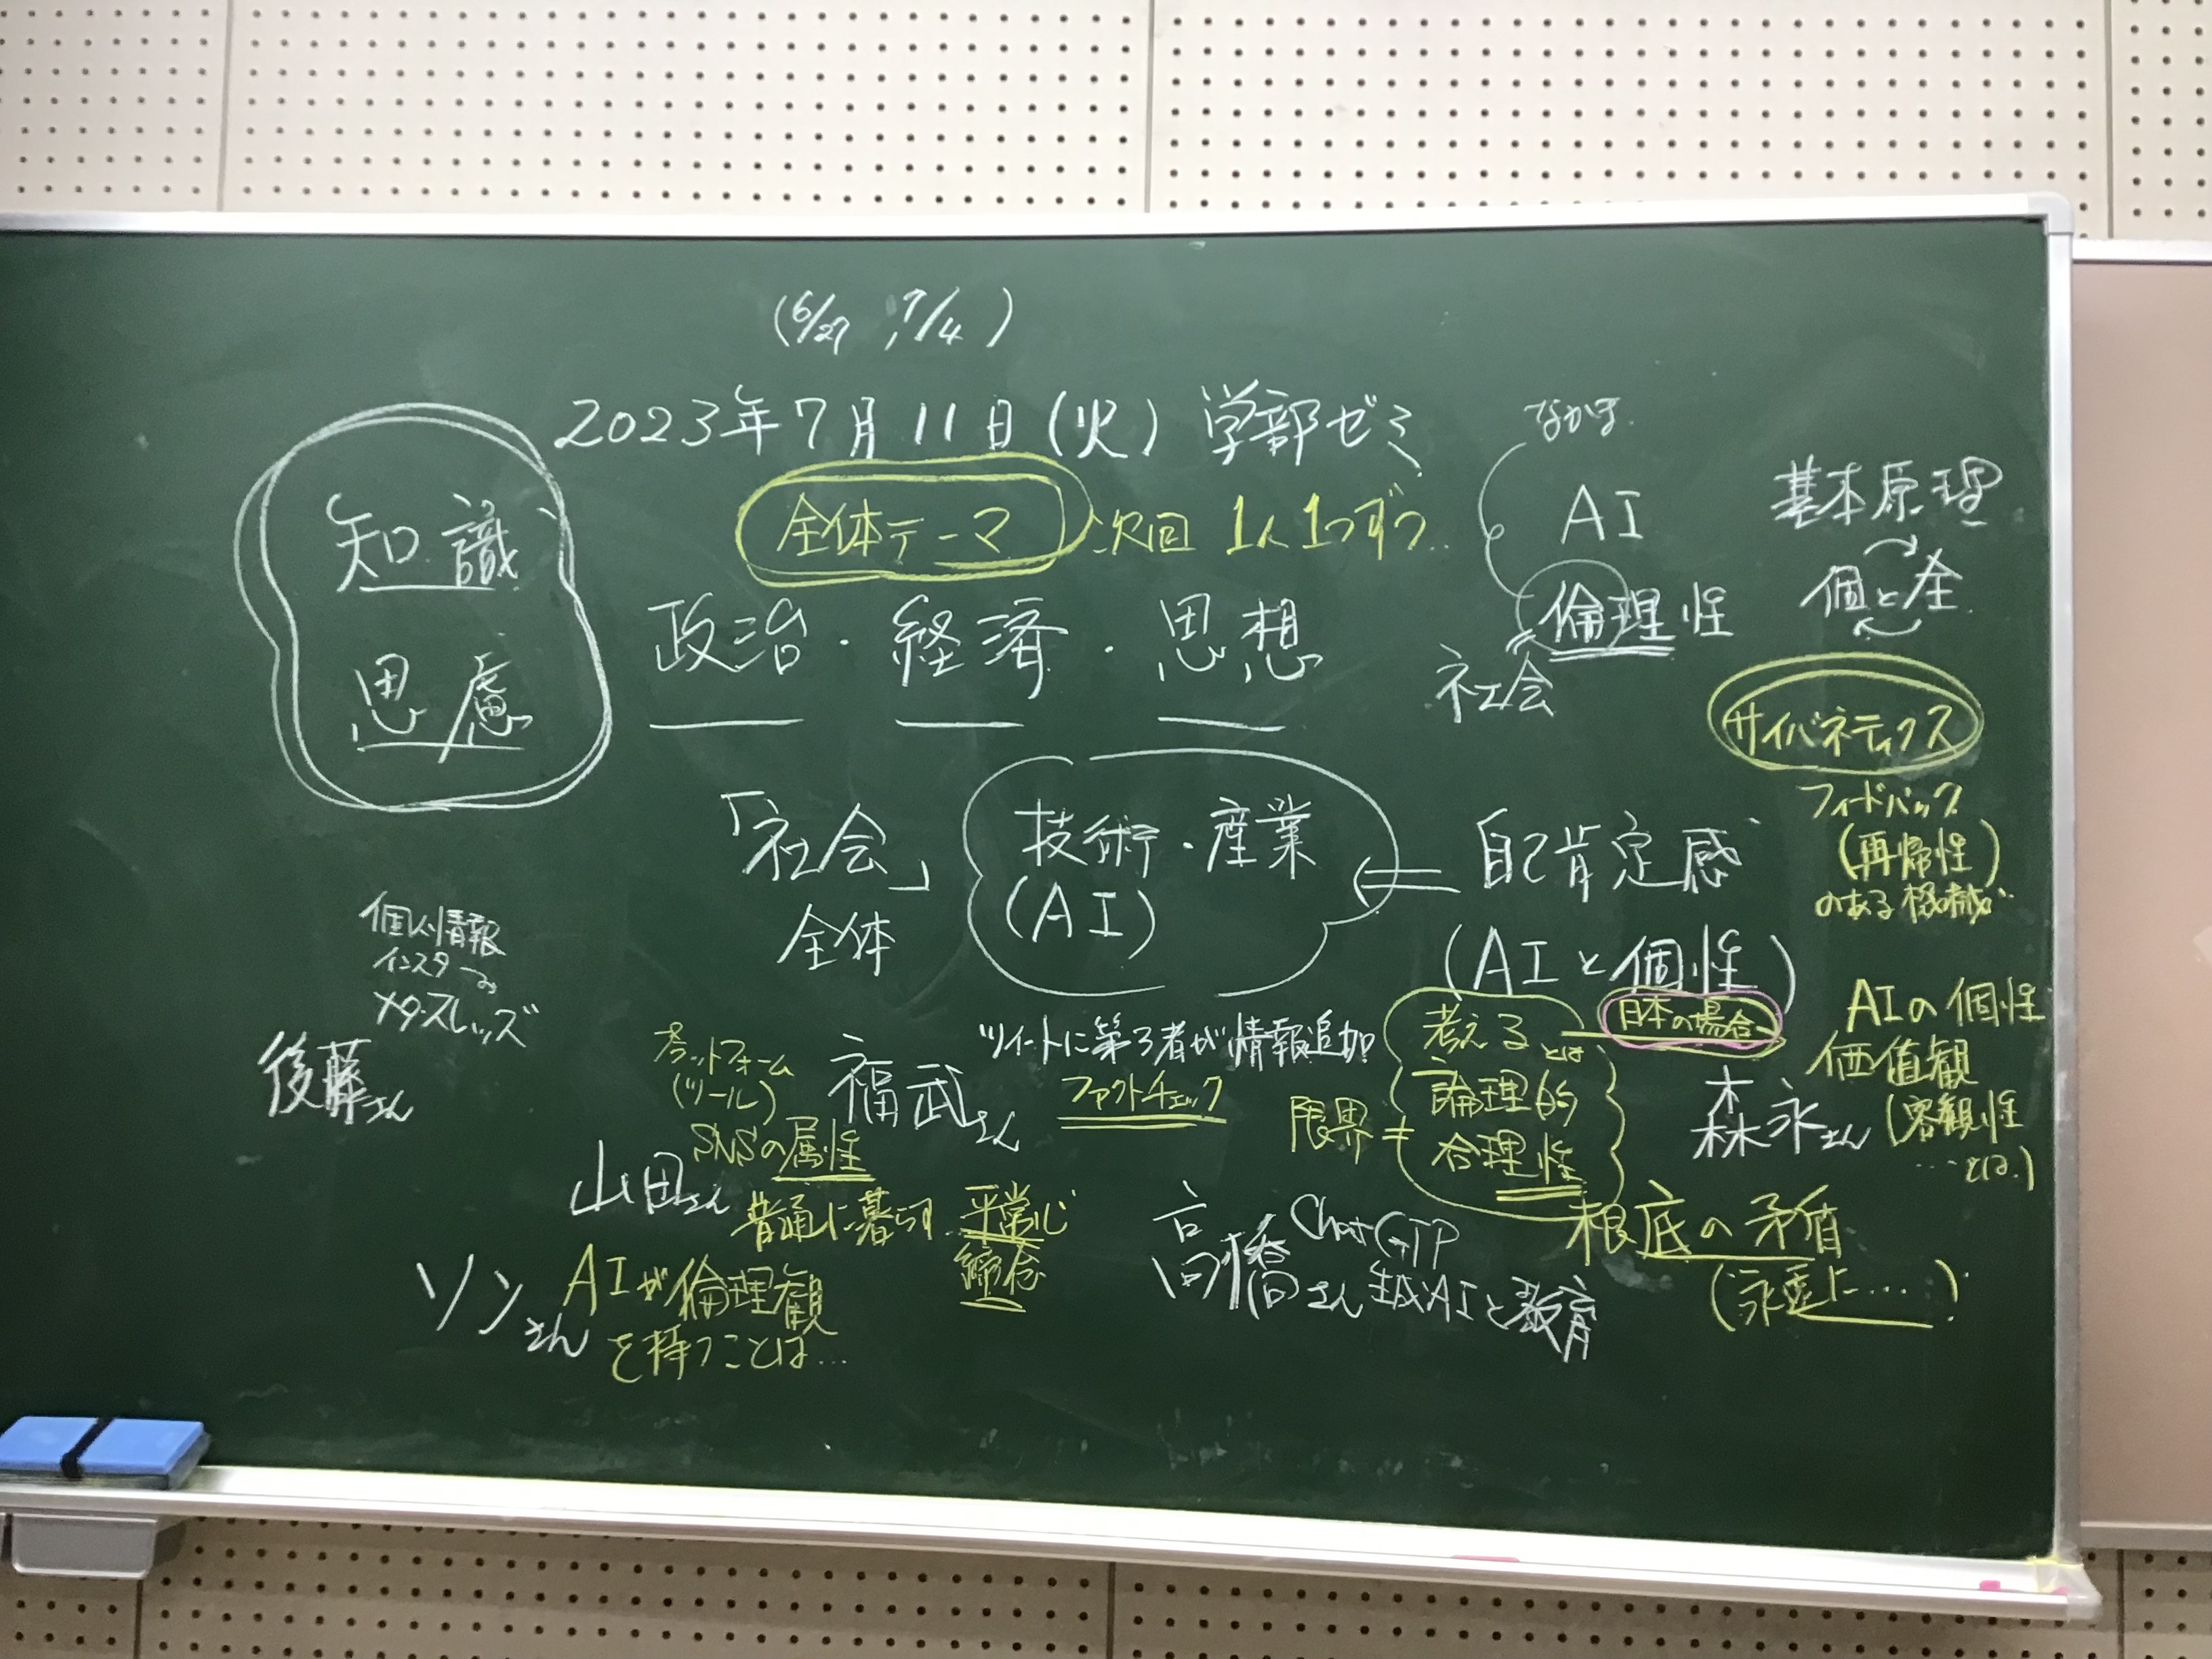 (6/27, 7/4)
2023年7月11日(火) 学部ゼミ
全体テーマ 次回 1人1つずつ..
知識
思慮
政治・経済・思想
なかま
AI
倫理性
社会
基本原理
個と全
サイバネティクス
フィードバック
(再帰性)
のある機械
「社会」
全体
技術・産業
(AI)
自己肯定感
(AIと個性)
個人情報
インスタ
メタ・スレッズ
後藤さん
(ツール)
SNSの属性
福武さん
ツイートに第3者が情報追加
ファクトチェック
考えるとは
日本の場合
論理的
合理性
限界
AIの個性
価値観
(客観性
…とは)
森永さん
山田さん
普通に暮らす 平常心
総合
高橋さん
ChatGTP
生成AIと教育
根底の矛盾
(永遠に……)
ソンさん
AIが倫理観
を持つことは…